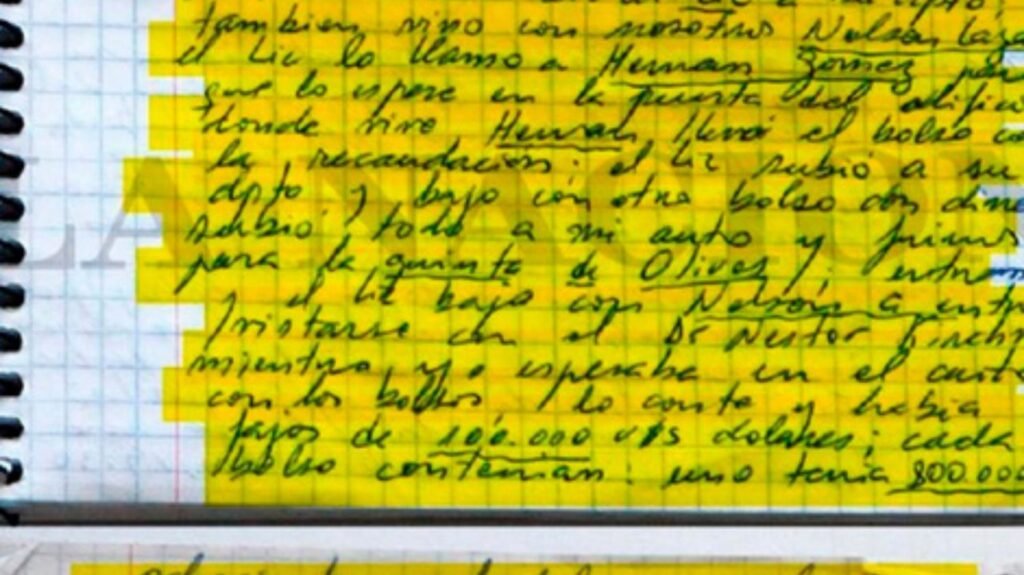 tambien vino con nosotros Nelson Laza
el Lic lo llamo a Hernan Gomez par
que lo espere en la puerta del edifici
donde vive Hernan llevó el bolso co
la recaudacion; el Lic subió a su
dpto y bajo con otro bolso con dine
subió todo a mi auto y fuimos
para la quinta de Olivos
y el Lic bajo con Nelson a entre
vistarse con el Dr Nestor Kirchn
mientras yo esperaba en el auto
con los bolsos, lo conte y habia
fajos de 100.000 U$S dolares; cada
bolso contenian: uno tenia 800.000
LA NACION